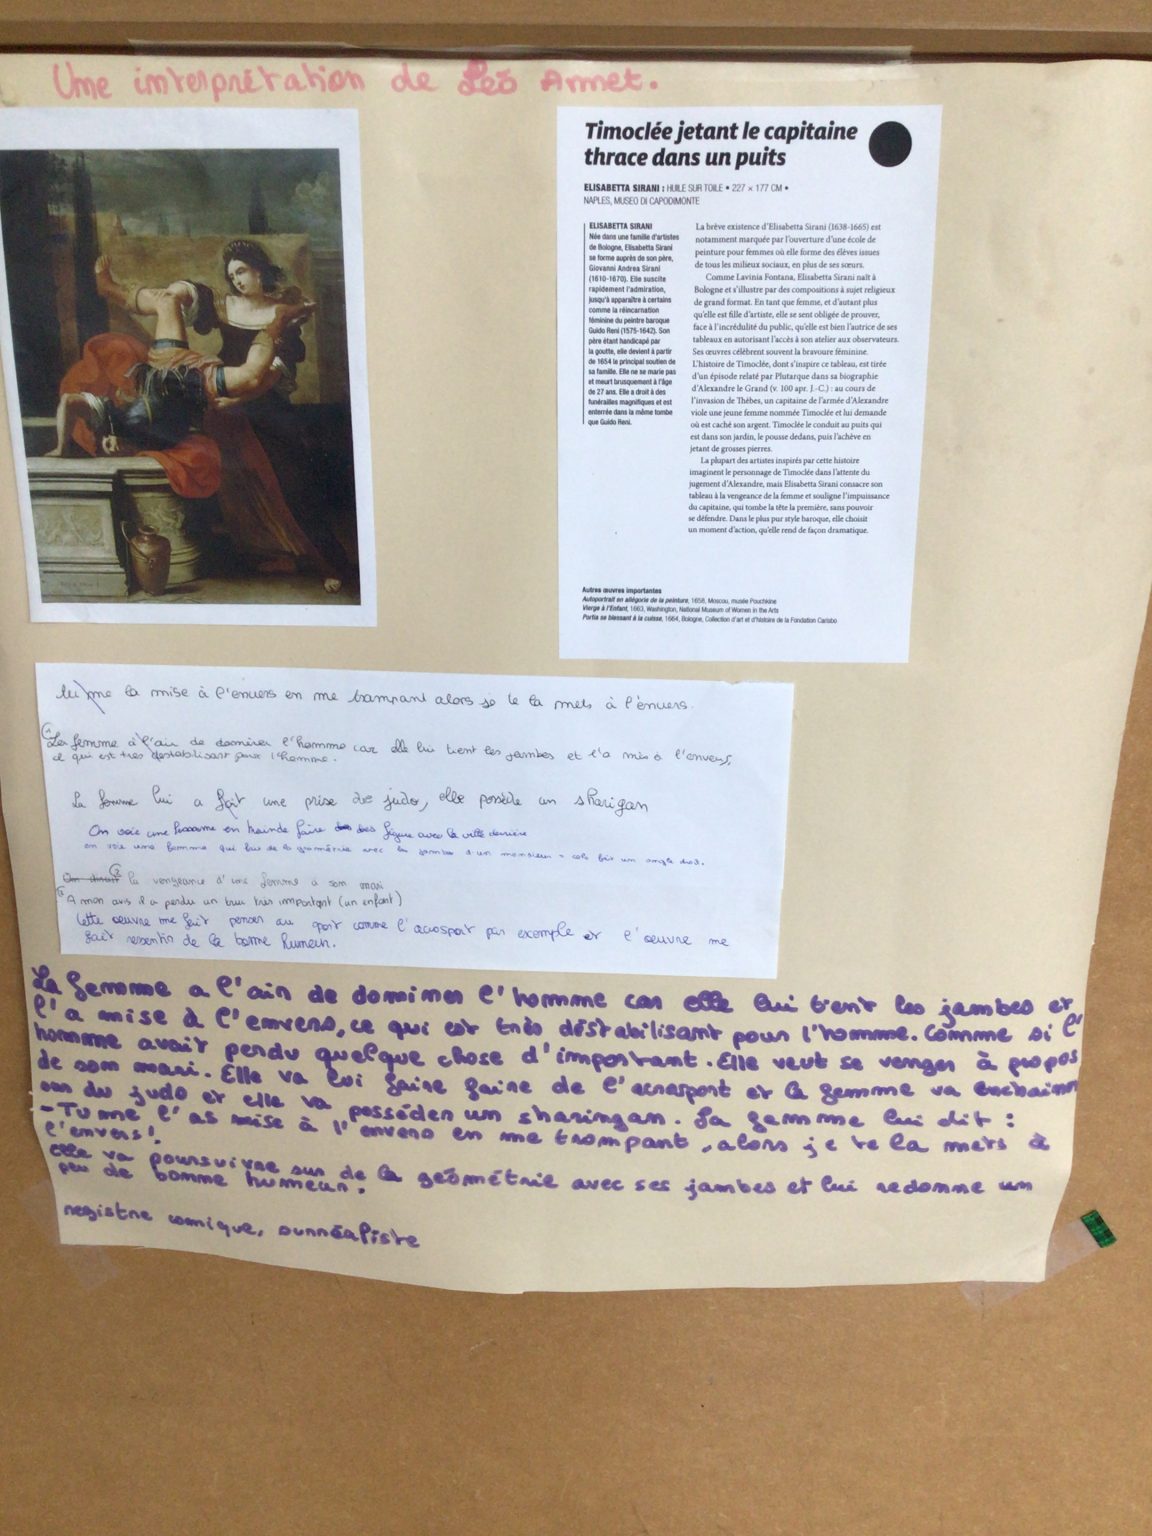 Une interprétation de Léo Armet.
Timoclée jetant le capitaine
thrace dans un puits
ELISABETTA SIRANI : HUILE SUR TOILE • 227 × 177 CM •
NAPLES, MUSEO DI CAPODIMONTE
ELISABETTA SIRANI
Née dans une famille d'artistes
de Bologne, Elisabetta Sirani
se forme auprès de son père,
Giovanni Andrea Sirani
(1610-1670). Elle suscite
rapidement l'admiration,
jusqu'à apparaître à certains
comme la réincarnation
féminine du peintre baroque
Guido Reni (1575-1642). Son
père étant handicapé par
la goutte, elle devient à partir
de 1654 le principal soutien de
sa famille. Elle ne se marie pas
et meurt brusquement à l'âge
de 27 ans. Elle a droit à des
funérailles magnifiques et est
enterrée dans la même tombe
que Guido Reni.
La brève existence d'Elisabetta Sirani (1638-1665) est
notamment marquée par l'ouverture d'une école de
peinture pour femmes où elle forme des élèves issues
de tous les milieux sociaux, en plus de ses sœurs.
Comme Lavinia Fontana, Elisabetta Sirani naît à
Bologne et s'illustre par des compositions à sujet religieux
de grand format. En tant que femme, et d'autant plus
qu'elle est fille d'artiste, elle se sent obligée de prouver,
face à l'incrédulité du public, qu'elle est bien l'autrice de ses
tableaux en autorisant l'accès à son atelier aux observateurs.
Ses œuvres célèbrent souvent la bravoure féminine.
L'histoire de Timoclée, dont s'inspire ce tableau, est tirée
d'un épisode relaté par Plutarque dans sa biographie
d'Alexandre le Grand (v. 100 apr. J.-C.) : au cours de
l'invasion de Thèbes, un capitaine de l'armée d'Alexandre
viole une jeune femme nommée Timoclée et lui demande
où est caché son argent. Timoclée le conduit au puits qui
est dans son jardin, le pousse dedans, puis l'achève en
jetant de grosses pierres.
La plupart des artistes inspirés par cette histoire
imaginent le personnage de Timoclée dans l'attente du
jugement d'Alexandre, mais Elisabetta Sirani consacre son
tableau à la vengeance de la femme et souligne l'impuissance
du capitaine, qui tombe la tête la première, sans pouvoir
se défendre. Dans le plus pur style baroque, elle choisit
un moment d'action, qu'elle rend de façon dramatique.
Autres œuvres importantes
Autoportrait en allégorie de la peinture, 1658, Moscou, musée Pouchkine
Vierge à l'Enfant, 1663, Washington, National Museum of Women in the Arts
Portia se blessant à la cuisse, 1664, Bologne, Collection d'art et d'histoire de la Fondation Carisbo
me la mise à l'envers en me trompant alors je te la mets à l'envers.
La femme à l'air de dominer l'homme car elle lui tient les jambes et l'a mis à l'envers,
ce qui est très destabilisant pour l'homme.
La femme lui a fait une prise de judo, elle possède un sharigan
On voie une femme en train de faire des figure avec la ville derrière
on voie une femme qui fait de la géométrie avec les jambes d'un monsieur = cela fait un angle droit.
② la vengeance d'une femme à son mari
③ A mon avis il a perdu un truc très important (un enfant)
Cette œuvre me fait penser au sport comme l'acrosport par exemple et l'œuvre me
fait ressentir de la bonne humeur.
La femme a l'air de dominer l'homme car elle lui tient les jambes et
l'a mise à l'envers, ce qui est très déstabilisant pour l'homme. Comme si l'
homme avait perdu quelque chose d'important. Elle veut se venger à propos
de son mari. Elle va lui faire faire de l'acrosport et la femme va enchainer
sur du judo et elle va posséder un sharingan. La femme lui dit :
- Tu me l'as mise à l'envers en me trompant, alors je te la mets à
l'envers !
elle va poursuivre sur de la géométrie avec ses jambes et lui redonne un
peu de bonne humeur.
registre comique, surréaliste